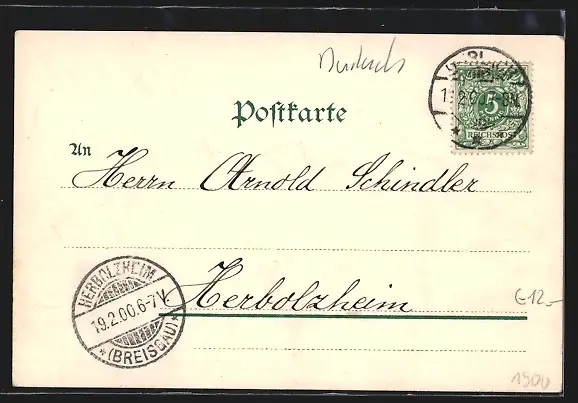 Postkarte
5
REICHSPOST
An
Herrn Arnold Schindler
Herbolzheim
HERBOLZHEIM
19.2.00.6-7V.
*(BREISGAU)*
€12.-
1900